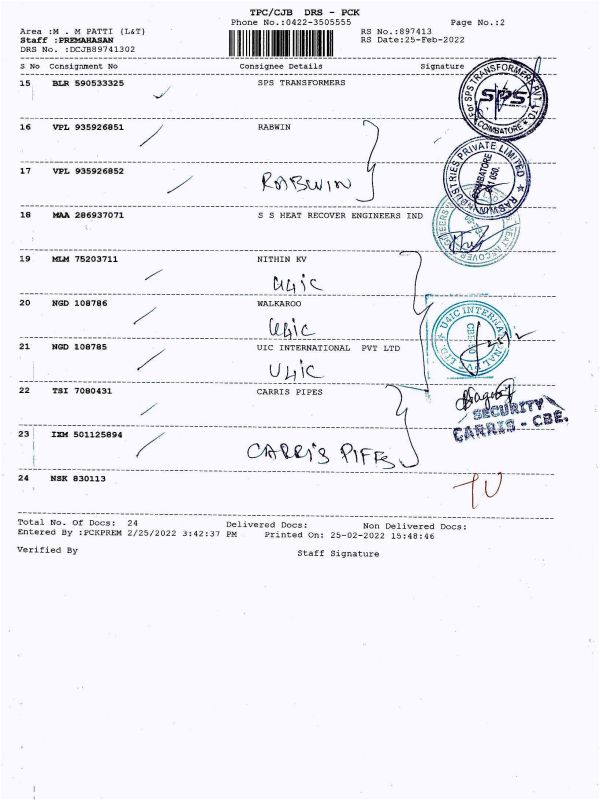 TPC/CJB DRS - PCK
Phone No.:0422-3505555 Page No.:2
Area :M . M PATTI (L&T) RS No.:897413
Staff :PREMAHASAN RS Date:25-Feb-2022
DRS No. :DCJB89741302
S No Consignment No Consignee Details Signature
15 BLR 590533325 SPS TRANSFORMERS
For SPS TRANSFORMERS PVT. LTD.
SPS
COIMBATORE
16 VPL 935926851 RABWIN
17 VPL 935926852
RABWIN
INDUSTRIES PRIVATE LIMITED
COIMBATORE
18 MAA 286937071 S S HEAT RECOVER ENGINEERS IND
HEAT RECOVER ENGINEERS
19 MLM 75203711 NITHIN KV
U4iC
20 NGD 108786 WALKAROO
U4iC
U4IC INTERNATIONAL PVT. LTD.
21 NGD 108785 UIC INTERNATIONAL PVT LTD
U4iC
22 TSI 7080431 CARRIS PIPES
SECURITY
CARRIS - CBE.
23 IXM 501125894
CARRiS PiPES
24 NSK 830113
TU
Total No. Of Docs: 24 Delivered Docs: Non Delivered Docs:
Entered By :PCKPREM 2/25/2022 3:42:37 PM Printed On: 25-02-2022 15:48:46
Verified By Staff Signature